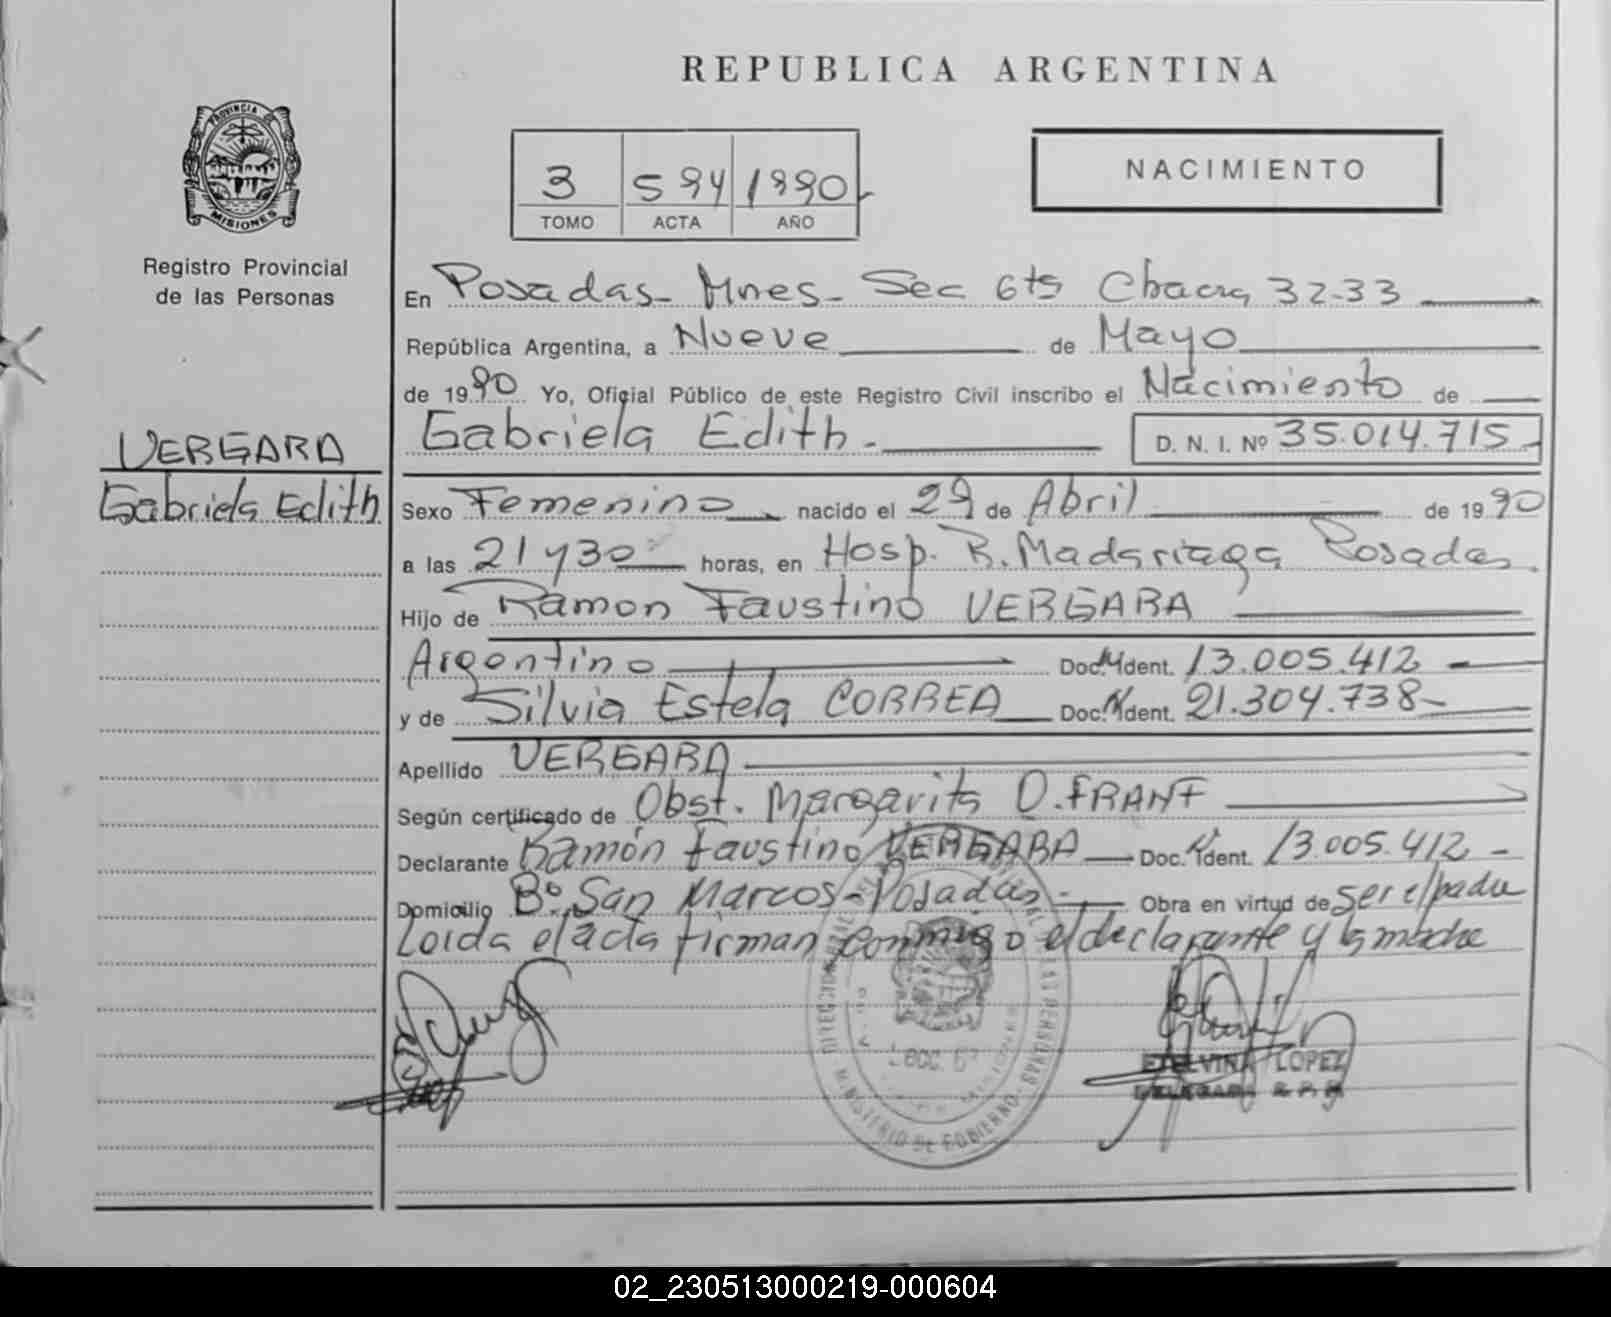 REPUBLICA ARGENTINA
PROVINCIA DE
MISIONES
Registro Provincial
de las Personas
3 594 1990
TOMO ACTA AÑO
NACIMIENTO
En Posadas - Mnes - Sec 6ta Chacra 32-33
República Argentina, a Nueve de Mayo
de 1990 Yo, Oficial Público de este Registro Civil inscribo el Nacimiento de
Gabriela Edith - D. N. I. Nº 35.014.715
VERGARA
Gabriela Edith
Sexo Femenino nacido el 29 de Abril de 1990
a las 21 y 30 horas, en Hosp. R. Madariaga Posadas
Hijo de Ramon Faustino VERGARA
Argentino Doc. Ident. 13.005.412
y de Silvia Estela CORREA Doc. Ident. 21.304.738-
Apellido VERGARA
Según certificado de Obst. Margarita O. FRANF
Declarante Ramón Faustino VERGARA Doc. Ident. 13.005.412 -
Domicilio Bº San Marcos - Posadas - Obra en virtud de ser el padre
Loida el acta firman conmigo el declarante y la madre
MINISTERIO DE GOBIERNO
ETELVINA LOPEZ
02_230513000219-000604